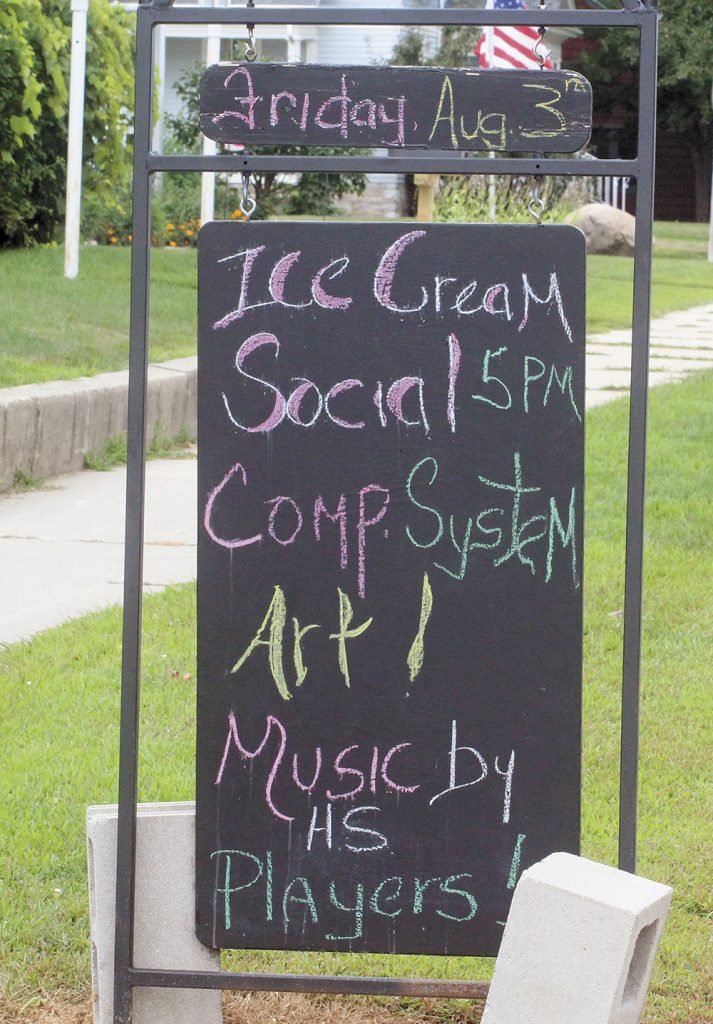 Friday, Aug. 3rd
Ice Cream
Social 5PM
Comp. System
Art!
Music by
HS
Players!